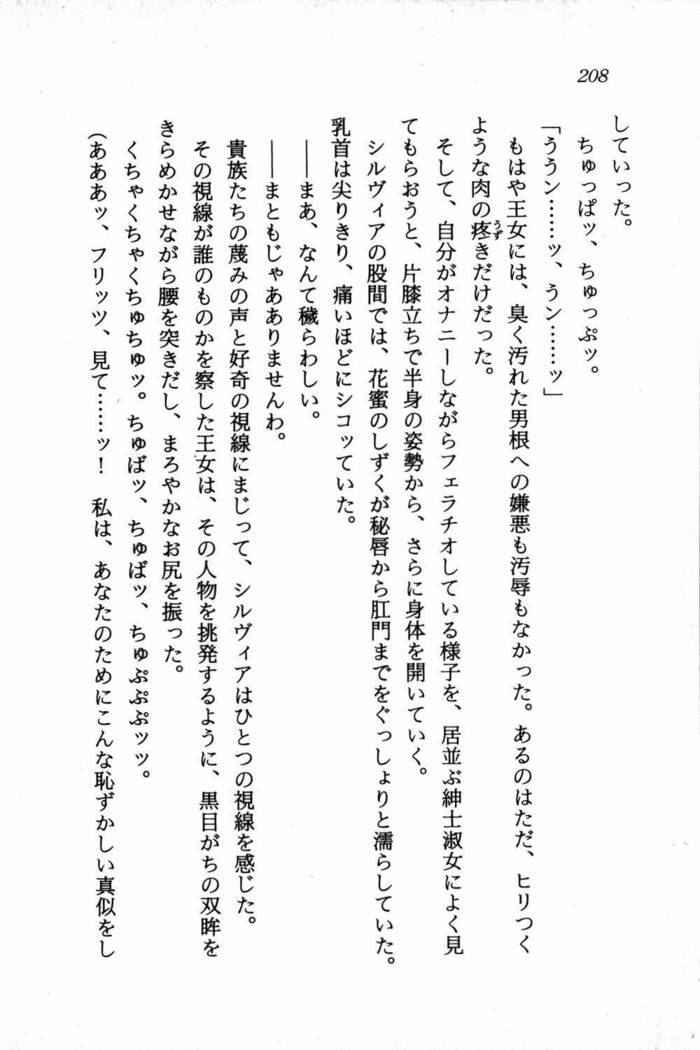 208
していった。
ちゅっぱッ、ちゅっぷッ。
「ううン……ッ、うン……ッ」
もはや王女には、臭く汚れた男根への嫌悪も汚辱もなかった。あるのはただ、ヒリつく
ような肉の疼きだけだった。
うず
そして、自分がオナニーしながらフェラチオしている様子を、居並ぶ紳士淑女によく見
てもらおうと、片膝立ちで半身の姿勢から、さらに身体を開いていく。
シルヴィアの股間では、花蜜のしずくが秘唇から肛門までをぐっしょりと濡らしていた。
乳首は尖りきり、痛いほどにシコッていた。
――まあ、なんて穢らわしい。
――まともじゃあありませんわ。
貴族たちの蔑みの声と好奇の視線にまじって、シルヴィアはひとつの視線を感じた。
その視線が誰のものかを察した王女は、その人物を挑発するように、黒目がちの双眸を
きらめかせながら腰を突きだし、まろやかなお尻を振った。
くちゃくちゃくちゅちゅッ。ちゅばッ、ちゅばッ、ちゅぷぷぷッッ。
(あああッ、フリッツ、見て……ッ! 私は、あなたのためにこんな恥ずかしい真似をし